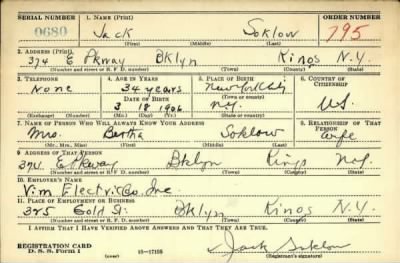 SERIAL NUMBER 1. NAME (Print) ORDER NUMBER
0680 Jack Soklow 795
(First) (Middle) (Last)
2. ADDRESS (Print)
374 E Pkway Bklyn Kings N.Y.
(Number and street or R. F. D. number) (Town) (County) (State)
3. TELEPHONE 4. AGE IN YEARS 5. PLACE OF BIRTH 6. COUNTRY OF CITIZENSHIP
None 34 years New York City
DATE OF BIRTH (Town or county)
3 18 1906 N.Y. U.S.
(Exchange) (Number) (Mo.) (Day) (Yr.) (State or country)
7. NAME OF PERSON WHO WILL ALWAYS KNOW YOUR ADDRESS 8. RELATIONSHIP OF THAT PERSON
Mrs. Bertha Soklow Wife
(Mr., Mrs., Miss) (First) (Middle) (Last)
9. ADDRESS OF THAT PERSON
374 E Pkway Bklyn Kings N.Y.
(Number and street or R. F. D. number) (Town) (County) (State)
10. EMPLOYER'S NAME
Vim Electric Co. Inc
11. PLACE OF EMPLOYMENT OR BUSINESS
325 Gold St. Bklyn Kings N.Y.
(Number and street or R. F. D. number) (Town) (County) (State)
I AFFIRM THAT I HAVE VERIFIED ABOVE ANSWERS AND THAT THEY ARE TRUE.
REGISTRATION CARD
D. S. S. Form 1 16—17105 Jack Soklow
(over) (Registrant's signature)